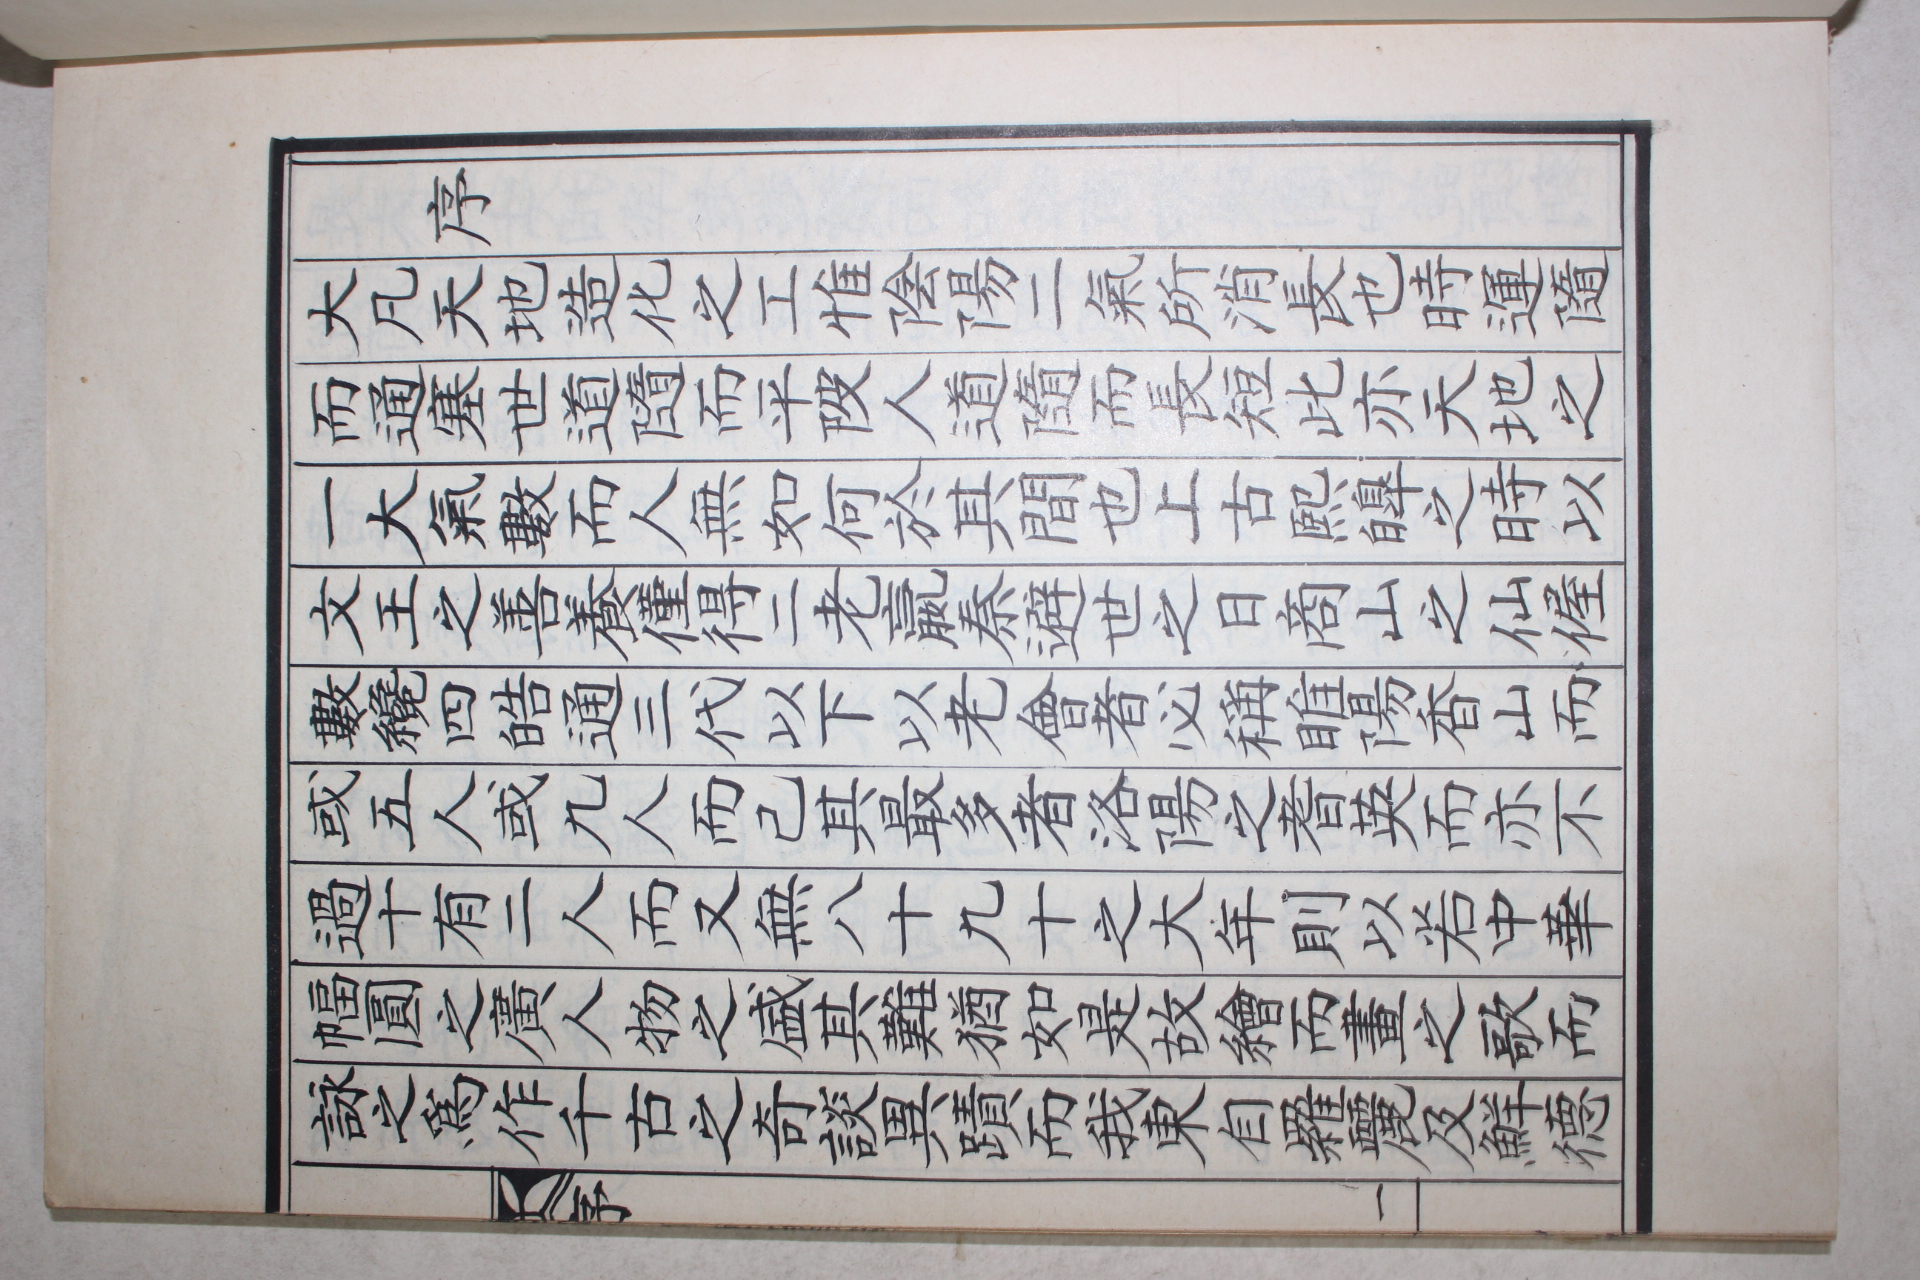 序
大凡天地造化之工惟陰陽二氣所消長也時運隨
而通塞世道隨而平陂人道隨而長短此亦天地之
一大氣數而人無如何於其間也上古熙皞之時以
文王之善養僅得二老嬴秦避世之日商山之仙偓
數纔四皓通三代以下以老會者必稱睢陽香山而
或五人或九人而己其最多者洛陽之耆英而亦不
過十有二人而又無八十九十之大年則以若中華
幅圓之廣人物之盛其難猶如是故繪而畫之歌而
詠之爲作千古之奇談異蹟而我東自羅麗及鮮德
序
一